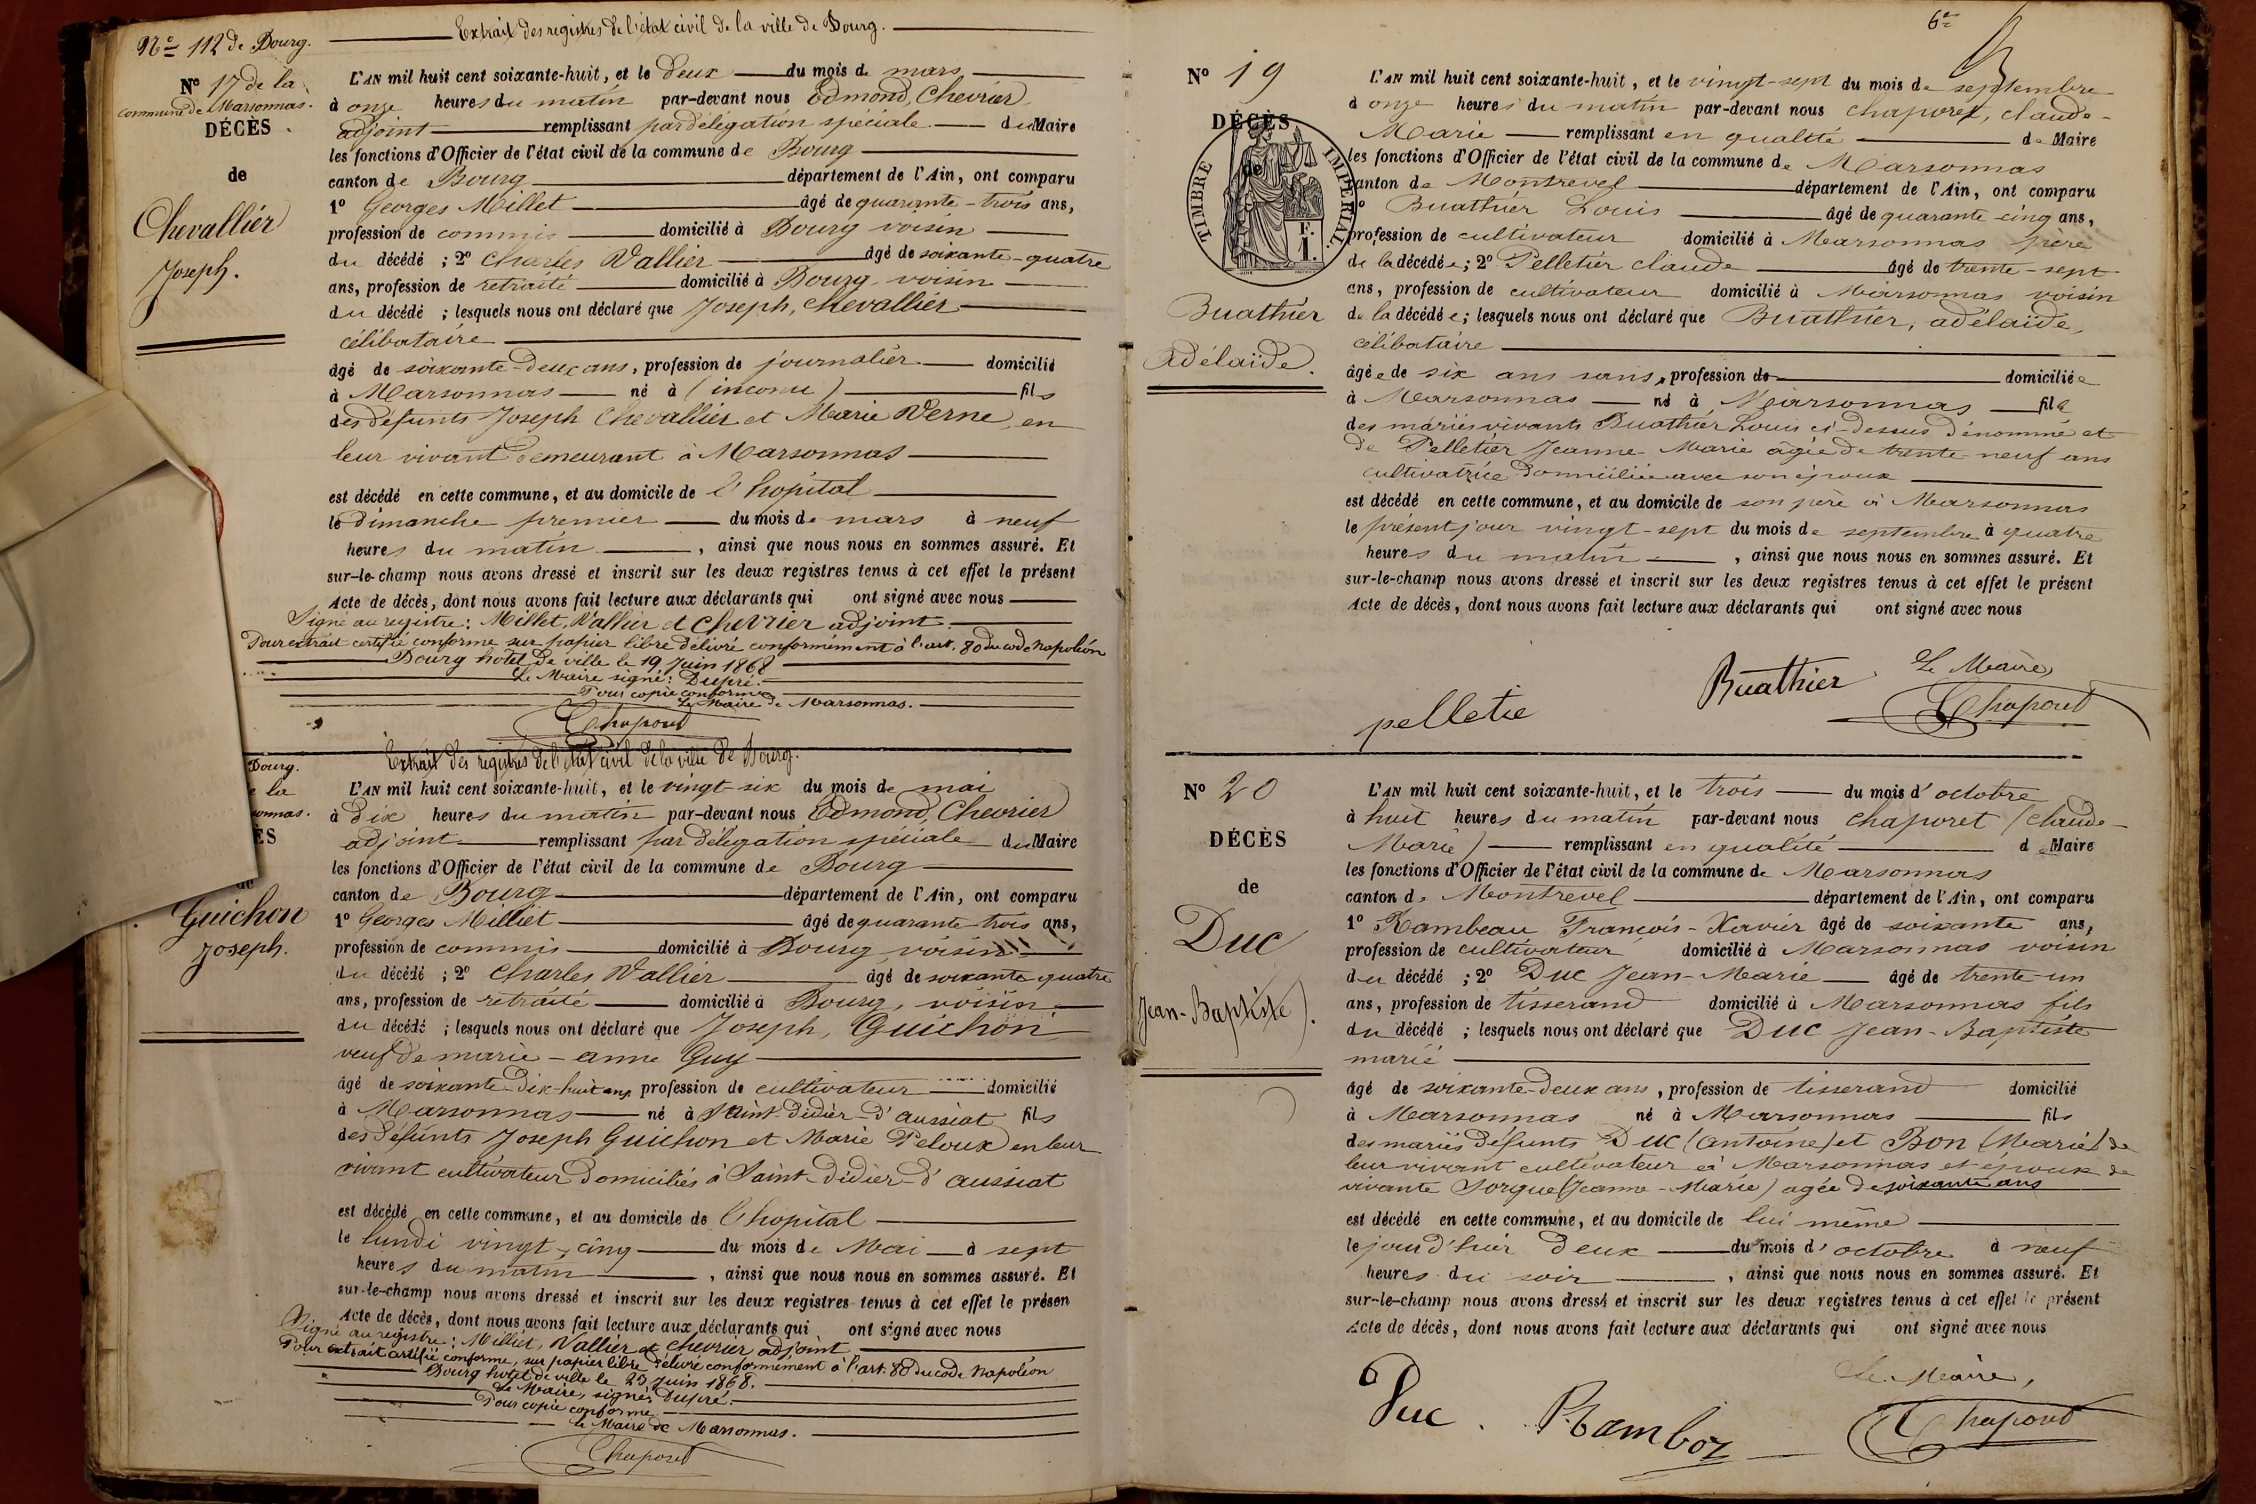 Nº 112 de Bourg.
Extrait des registres de l'état civil de la ville de Bourg.
Nº 17 de la
commune de Marsonnas.
DÉCÈS
de
Chevallier
Joseph.
L'AN mil huit cent soixante-huit, et le deux du mois de mars
à onze heures du matin par-devant nous Edmond, Chevrier
adjoint remplissant par délégation spéciale du Maire
les fonctions d'Officier de l'état civil de la commune de Bourg
canton de Bourg département de l'Ain, ont comparu
1º Georges Millet âgé de quarante-trois ans,
profession de commis domicilié à Bourg voisin
du décédé ; 2º Charles Vallier âgé de soixante-quatre
ans, profession de retraité domicilié à Bourg, voisin
du décédé ; lesquels nous ont déclaré que Joseph, Chevallier
célibataire
âgé de soixante-deux ans, profession de journalier domicilié
à Marsonnas né à (inconnu) fils
des défunts Joseph Chevallier et Marie Verne, en
leur vivant demeurant à Marsonnas
est décédé en cette commune, et au domicile de l'hopital
le dimanche premier du mois de mars à neuf
heures du matin, ainsi que nous nous en sommes assuré. Et
sur-le-champ nous avons dressé et inscrit sur les deux registres tenus à cet effet le présent
Acte de décès, dont nous avons fait lecture aux déclarants qui ont signé avec nous
Signé au registre: Millet, Vallier et Chevrier adjoint.
Pour extrait certifié conforme sur papier libre délivré conformément à l'art. 80 du code Napoléon
Bourg hotel de ville le 19 Juin 1868
Le Maire signé: Dupré.
Pour copie conforme
Le Maire de Marsonnas.
Chaporet
Extrait des registres de l'état civil de la ville de Bourg.
Bourg.
la
sonnas.
ÈS
de
Guichon
Joseph.
L'AN mil huit cent soixante-huit, et le vingt-six du mois de mai
à dix heures du matin par-devant nous Edmond, Chevrier
adjoint remplissant par délégation spéciale du Maire
les fonctions d'Officier de l'état civil de la commune de Bourg
canton de Bourg département de l'Ain, ont comparu
1º Georges Milliet âgé de quarante trois ans,
profession de commis domicilié à Bourg, voisin
du décédé ; 2º Charles Vallier âgé de soixante-quatre
ans, profession de retraité domicilié à Bourg, voisin
du décédé ; lesquels nous ont déclaré que Joseph, Guichon
veuf de marie-anne Guy
âgé de soixante-dix-huit ans profession de cultivateur domicilié
à Marsonnas né à Saint-didier-d'aussiat fils
des défunts Joseph Guichon et Marie Peloux en leur
vivant cultivateur domiciliés à Saint-Didier-d'aussiat
est décédé en cette commune, et au domicile de l'hopital
le lundi vingt-cinq du mois de Mai à sept
heures du matin, ainsi que nous nous en sommes assuré. Et
sur-le-champ nous avons dressé et inscrit sur les deux registres tenus à cet effet le présen
Acte de décès, dont nous avons fait lecture aux déclarants qui ont signé avec nous
Signé au registre: Milliet, Vallier et Chevrier adjoint
Pour extrait certifié conforme, sur papier libre délivré conformément à l'art. 80 du code Napoléon
Bourg hotel de ville le 23 Juin 1868.
Le Maire, signé: Dupré.
Pour copie conforme
le Maire de Marsonnas.
Chaporet
6e
Nº 19
DÉCÈS
de
TIMBRE IMPÉRIAL.
F.
1.
Buathier
Adélaïde.
L'AN mil huit cent soixante-huit, et le vingt-sept du mois de septembre
à onze heures du matin par-devant nous chaporet, claude-
Marie remplissant en qualité de Maire
les fonctions d'Officier de l'état civil de la commune de Marsonnas
canton de Montrevel département de l'Ain, ont comparu
1º Buathier Louis âgé de quarante-cinq ans,
profession de cultivateur domicilié à Marsonnas père
de la décédée; 2º Pelletier claude âgé de trente-sept
ans, profession de cultivateur domicilié à Marsonnas voisin
de la décédée; lesquels nous ont déclaré que Buathier, adélaïde,
célibataire
âgée de six ans sans profession de domiciliée
à Marsonnas né à Marsonnas fille
des mariés vivants Buathier Louis ci-dessus dénommé et
de Pelletier Jeanne Marie âgée de trente-neuf ans
cultivatrice domiciliée avec son époux
est décédé en cette commune, et au domicile de son père à Marsonnas
le présent jour vingt-sept du mois de septembre à quatre
heures du matin, ainsi que nous nous en sommes assuré. Et
sur-le-champ nous avons dressé et inscrit sur les deux registres tenus à cet effet le présent
Acte de décès, dont nous avons fait lecture aux déclarants qui ont signé avec nous
Le Maire
Buathier
Chaporet
pelletie
Nº 20
DÉCÈS
de
Duc
(Jean-Baptiste).
L'AN mil huit cent soixante-huit, et le trois du mois d'octobre
à huit heures du matin par-devant nous Chaporet (claude-
Marie) remplissant en qualité de Maire
les fonctions d'Officier de l'état civil de la commune de Marsonnas
canton de Montrevel département de l'Ain, ont comparu
1º Rambeau François-Xavier âgé de soixante ans,
profession de cultivateur domicilié à Marsonnas voisin
du décédé ; 2º Duc Jean-Marie âgé de trente-un
ans, profession de tisserand domicilié à Marsonnas fils
du décédé ; lesquels nous ont déclaré que Duc Jean-Baptiste
marié
âgé de soixante-deux ans, profession de tisserand domicilié
à Marsonnas né à Marsonnas fils
des mariés défunts Duc (antoine) et Bon (Marie) de
leur vivant cultivateur à Marsonnas et époux de
vivante Sorgue (Jeanne-Marie) agée de soixante ans
est décédé en cette commune, et au domicile de lui même
le jour d'hier deux du mois d'octobre à neuf
heures du soir, ainsi que nous nous en sommes assuré. Et
sur-le-champ nous avons dressé et inscrit sur les deux registres tenus à cet effet le présent
Acte de décès, dont nous avons fait lecture aux déclarants qui ont signé avec nous
Le Maire,
Duc. Ramboz
Chaporet